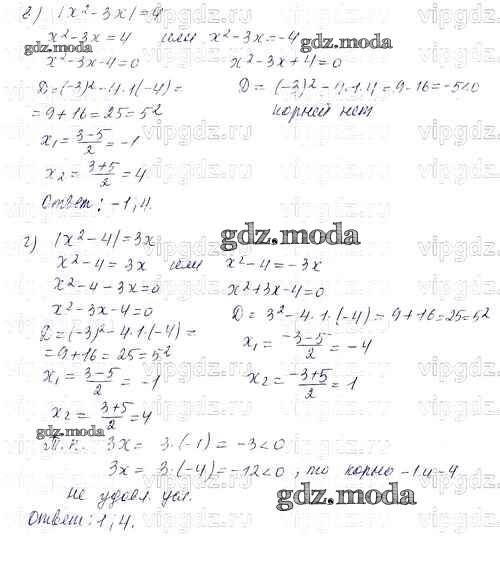 г) |x²-3x|=4
x²-3x=4 или x²-3x=-4
gdz.moda
x²-3x-4=0 x²-3x+4=0
D=(-3)²-4·1(-4)= D=(-3)²-4·1·4=9-16=-5<0
=9+16=25=5² корней нет
x₁=3-5/2=-1
x₂=3+5/2=4
Ответ: -1; 4.
gdz.moda
г) |x²-4|=3x
x²-4=3x или x²-4=-3x
x²-4-3x=0 x²+3x-4=0
x²-3x-4=0 D=3²-4·1·(-4)=9+16=25=5²
D=(-3)²-4·1·(-4)= x₁=-3-5/2=-4
=9+16=25=5²
x₁=3-5/2=-1 x₂=-3+5/2=1
x₂=3+5/2=4
gdz.moda
Т.к. 3x=3·(-1)=-3<0
3x=3·(-4)=-12<0, то корно -1 и -4
не удовл. усл.
gdz.moda
Ответ: 1; 4.
vipgdz.ru